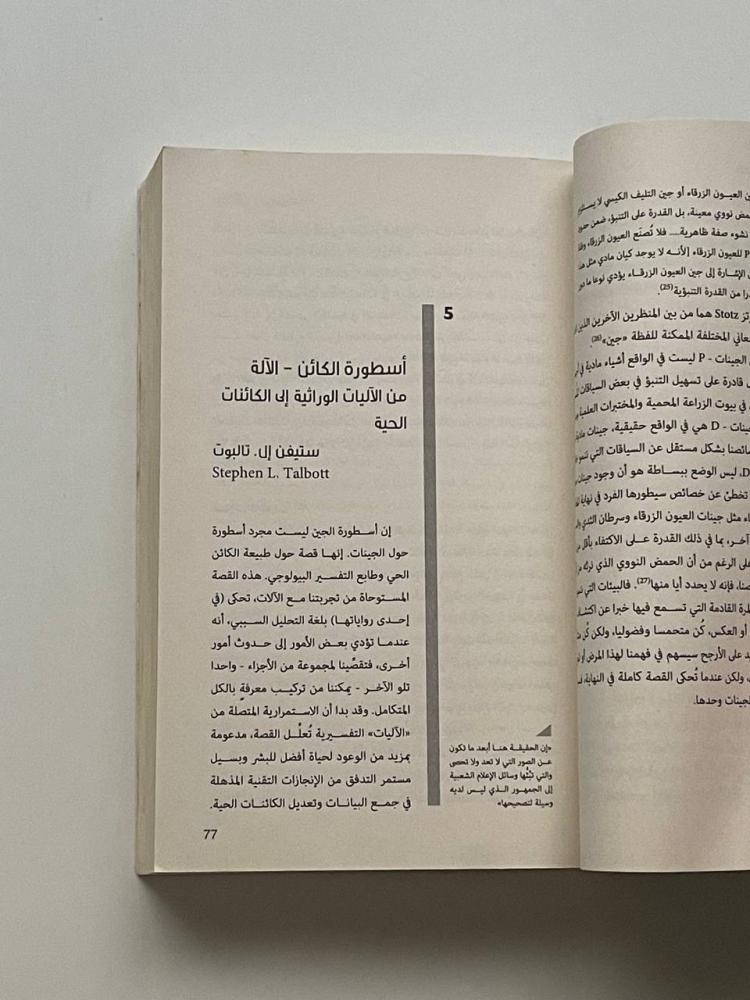 العيون الزرقاء أو جين التليف الكيسي لا
نووي معينة، بل القدرة على التنبؤ، ضمن
نشوء صفة ظاهرية.... فلا تُصنَع العيون الزرقاء
P للعيون الزرقاء [لأنه لا يوجد كيان مادي مثل
الإشارة إلى جين العيون الزرقاء يؤدي نوعا ما
من القدرة التنبؤية(25).
Stotz هما من بين المنظرين الآخرين
المختلفة الممكنة للفظة «جين»(26).
الجينات - P ليست في الواقع أشياء مادية في
قادرة على تسهيل التنبؤ في بعض السياقات
في بيوت الزراعة المحمية والمختبرات العلمية
D - هي في الواقع حقيقية، جينات
بشكل مستقل عن السياقات التي
ليس الوضع ببساطة هو أن وجود جينات
تخطئ عن خصائص سيطورها الفرد في نهاية
مثل جينات العيون الزرقاء وسرطان الثدي
آخر، بما في ذلك القدرة على الاكتفاء بأقل
الرغم من أن الحمض النووي الذي
فإنه لا يحدد أيا منها(27). فالبيئات التي
القادمة التي تسمع فيها خبرا عن
أو العكس، كُن متحمسا وفضوليا، ولكن كُن
على الأرجح سيسهم في فهمنا لهذا المرض أو
ولكن عندما تُحكى القصة كاملة في النهاية،
وحدها.
5
أسطورة الكائن – الآلة
من الآليات الوراثية إلى الكائنات
الحية
ستيفن إل. تالبوت
Stephen L. Talbott
إن أسطورة الجين ليست مجرد أسطورة
حول الجينات. إنها قصة حول طبيعة الكائن
الحي وطابع التفسير البيولوجي. هذه القصة
المستوحاة من تجربتنا مع الآلات، تحكى (في
إحدى رواياتها) بلغة التحليل السببي، أنه
عندما تؤدي بعض الأمور إلى حدوث أمور
أخرى، فتقصِّينا لمجموعة من الأجزاء - واحدا
تلو الآخر - يمكننا من تركيب معرفةٍ بالكل
المتكامل. وقد بدا أن الاستمرارية المتصلة من
«الآليات» التفسيرية تُعلِّل القصة، مدعومة
بمزيد من الوعود لحياة أفضل للبشر وبسيل
مستمر التدفق من الإنجازات التقنية المذهلة
في جمع البيانات وتعديل الكائنات الحية.
«إن الحقيقة هنا أبعد ما تكون
عن الصور التي لا تعد ولا تحصى
والتي تبثُّها وسائل الإعلام الشعبية
إلى الجمهور الذي ليس لديه
وسيلة لتصحيحها»
77